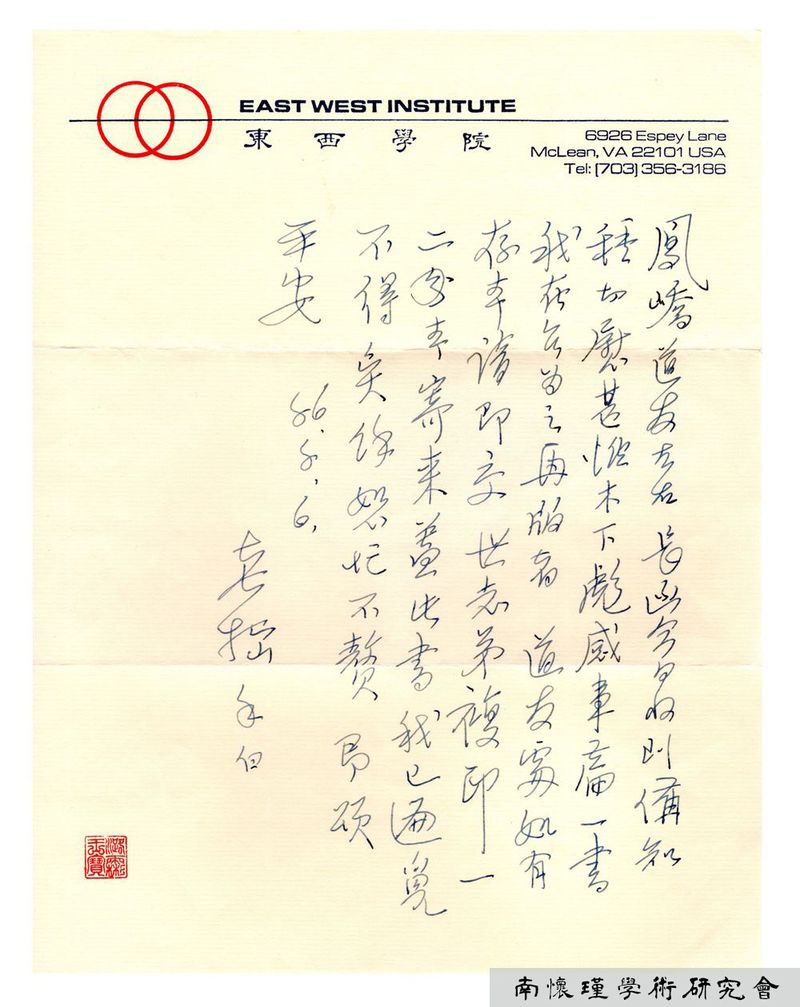 EAST WEST INSTITUTE
東西學院
6926 Espey Lane
McLean, VA 22101 USA
Tel: (703) 356-3186
鳳嶠道友左右 長函今日收到備知
種切慰甚 木下彪感事篇一書
我在台為之再版者 道友處如有
存本請即交 世志弟複印一
二多本寄來蓋此書我已遍覓
不得矣餘恕忙不贅 即頌
平安
老拙手白
南懷瑾學術研究會